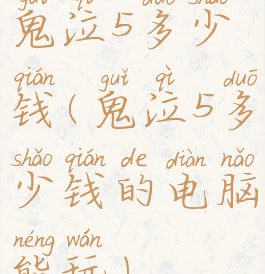 guǐ qì duō shǎo
鬼泣5多少
qián guǐ qì duō
钱(鬼泣5多
shǎo qián de diàn nǎo
少钱的电脑
néng wán
能玩)